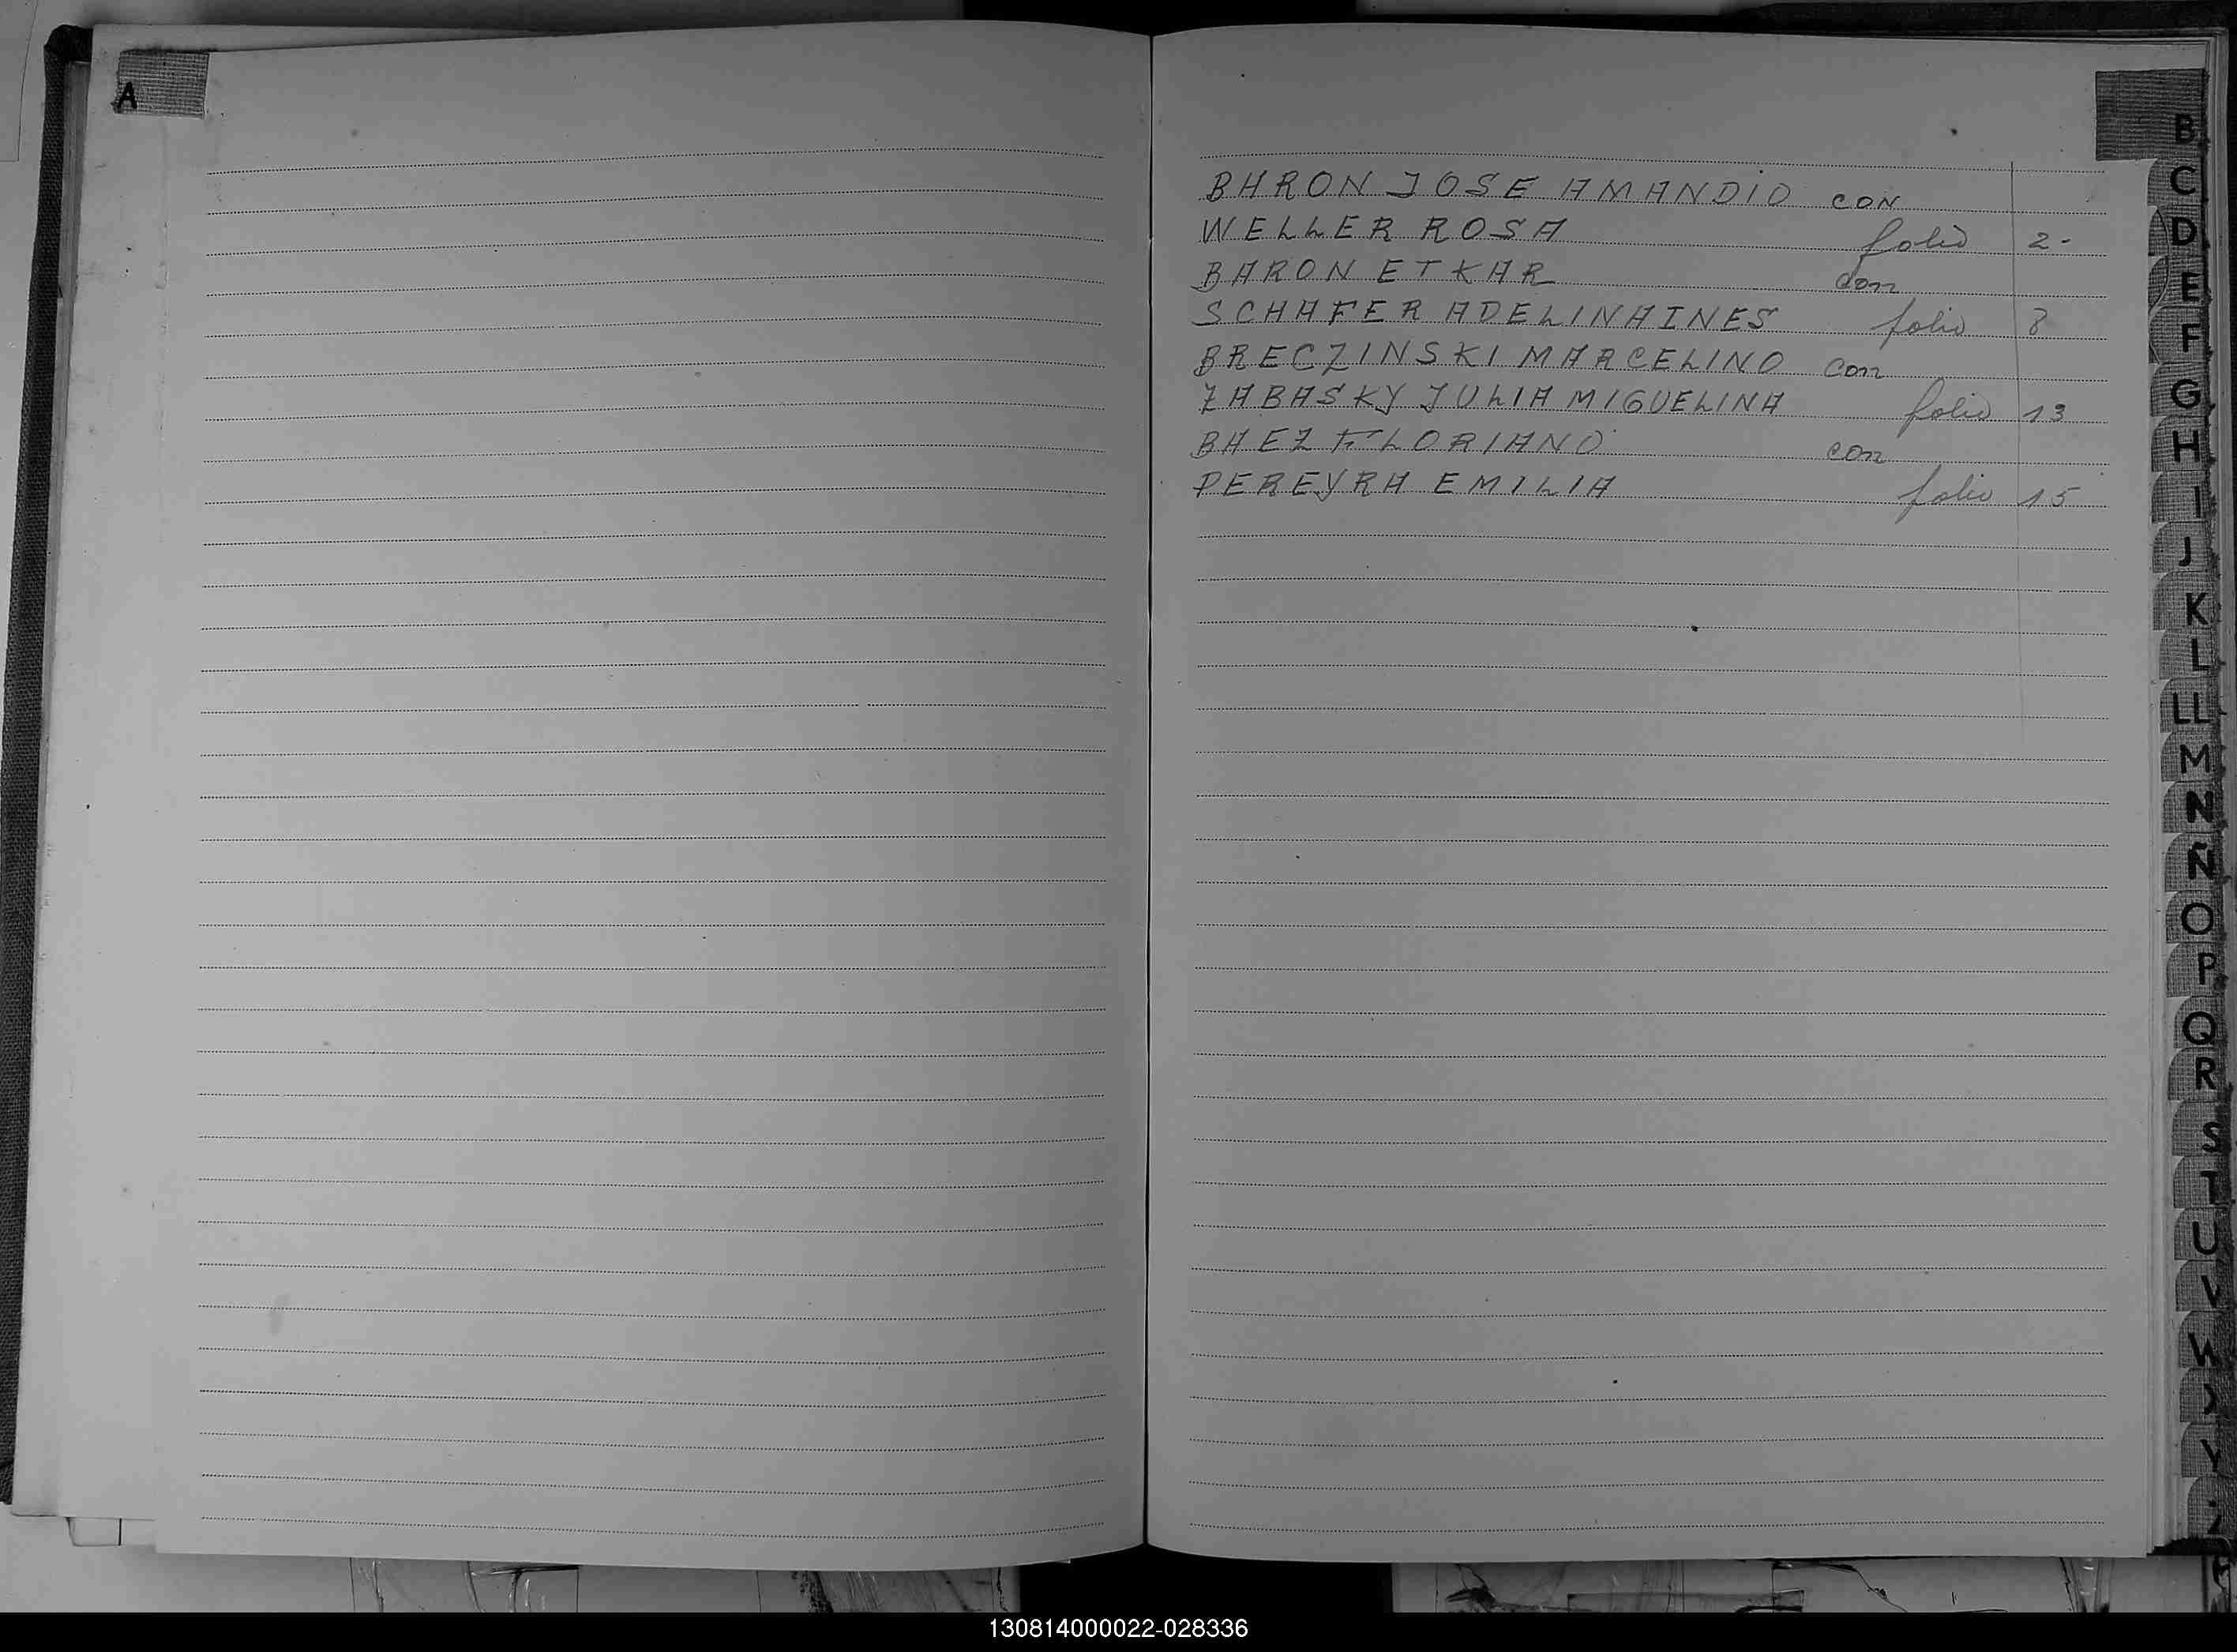 A
BARON JOSE AMANDIO CON
WELLER ROSA folio 2-
BARON ETKAR con
SCHAFER ADELINAINES folio 8
BRECZINSKI MARCELINO con
ZABASKY JULIA MIGUELINA folio 13
BAEZ FLORIANO con
PEREYRA EMILIA folio 15
B
C
D
E
F
G
H
I
J
K
L
LL
M
N
Ñ
O
P
Q
R
S
T
U
V
W
X
Y
Z
130814000022-028336